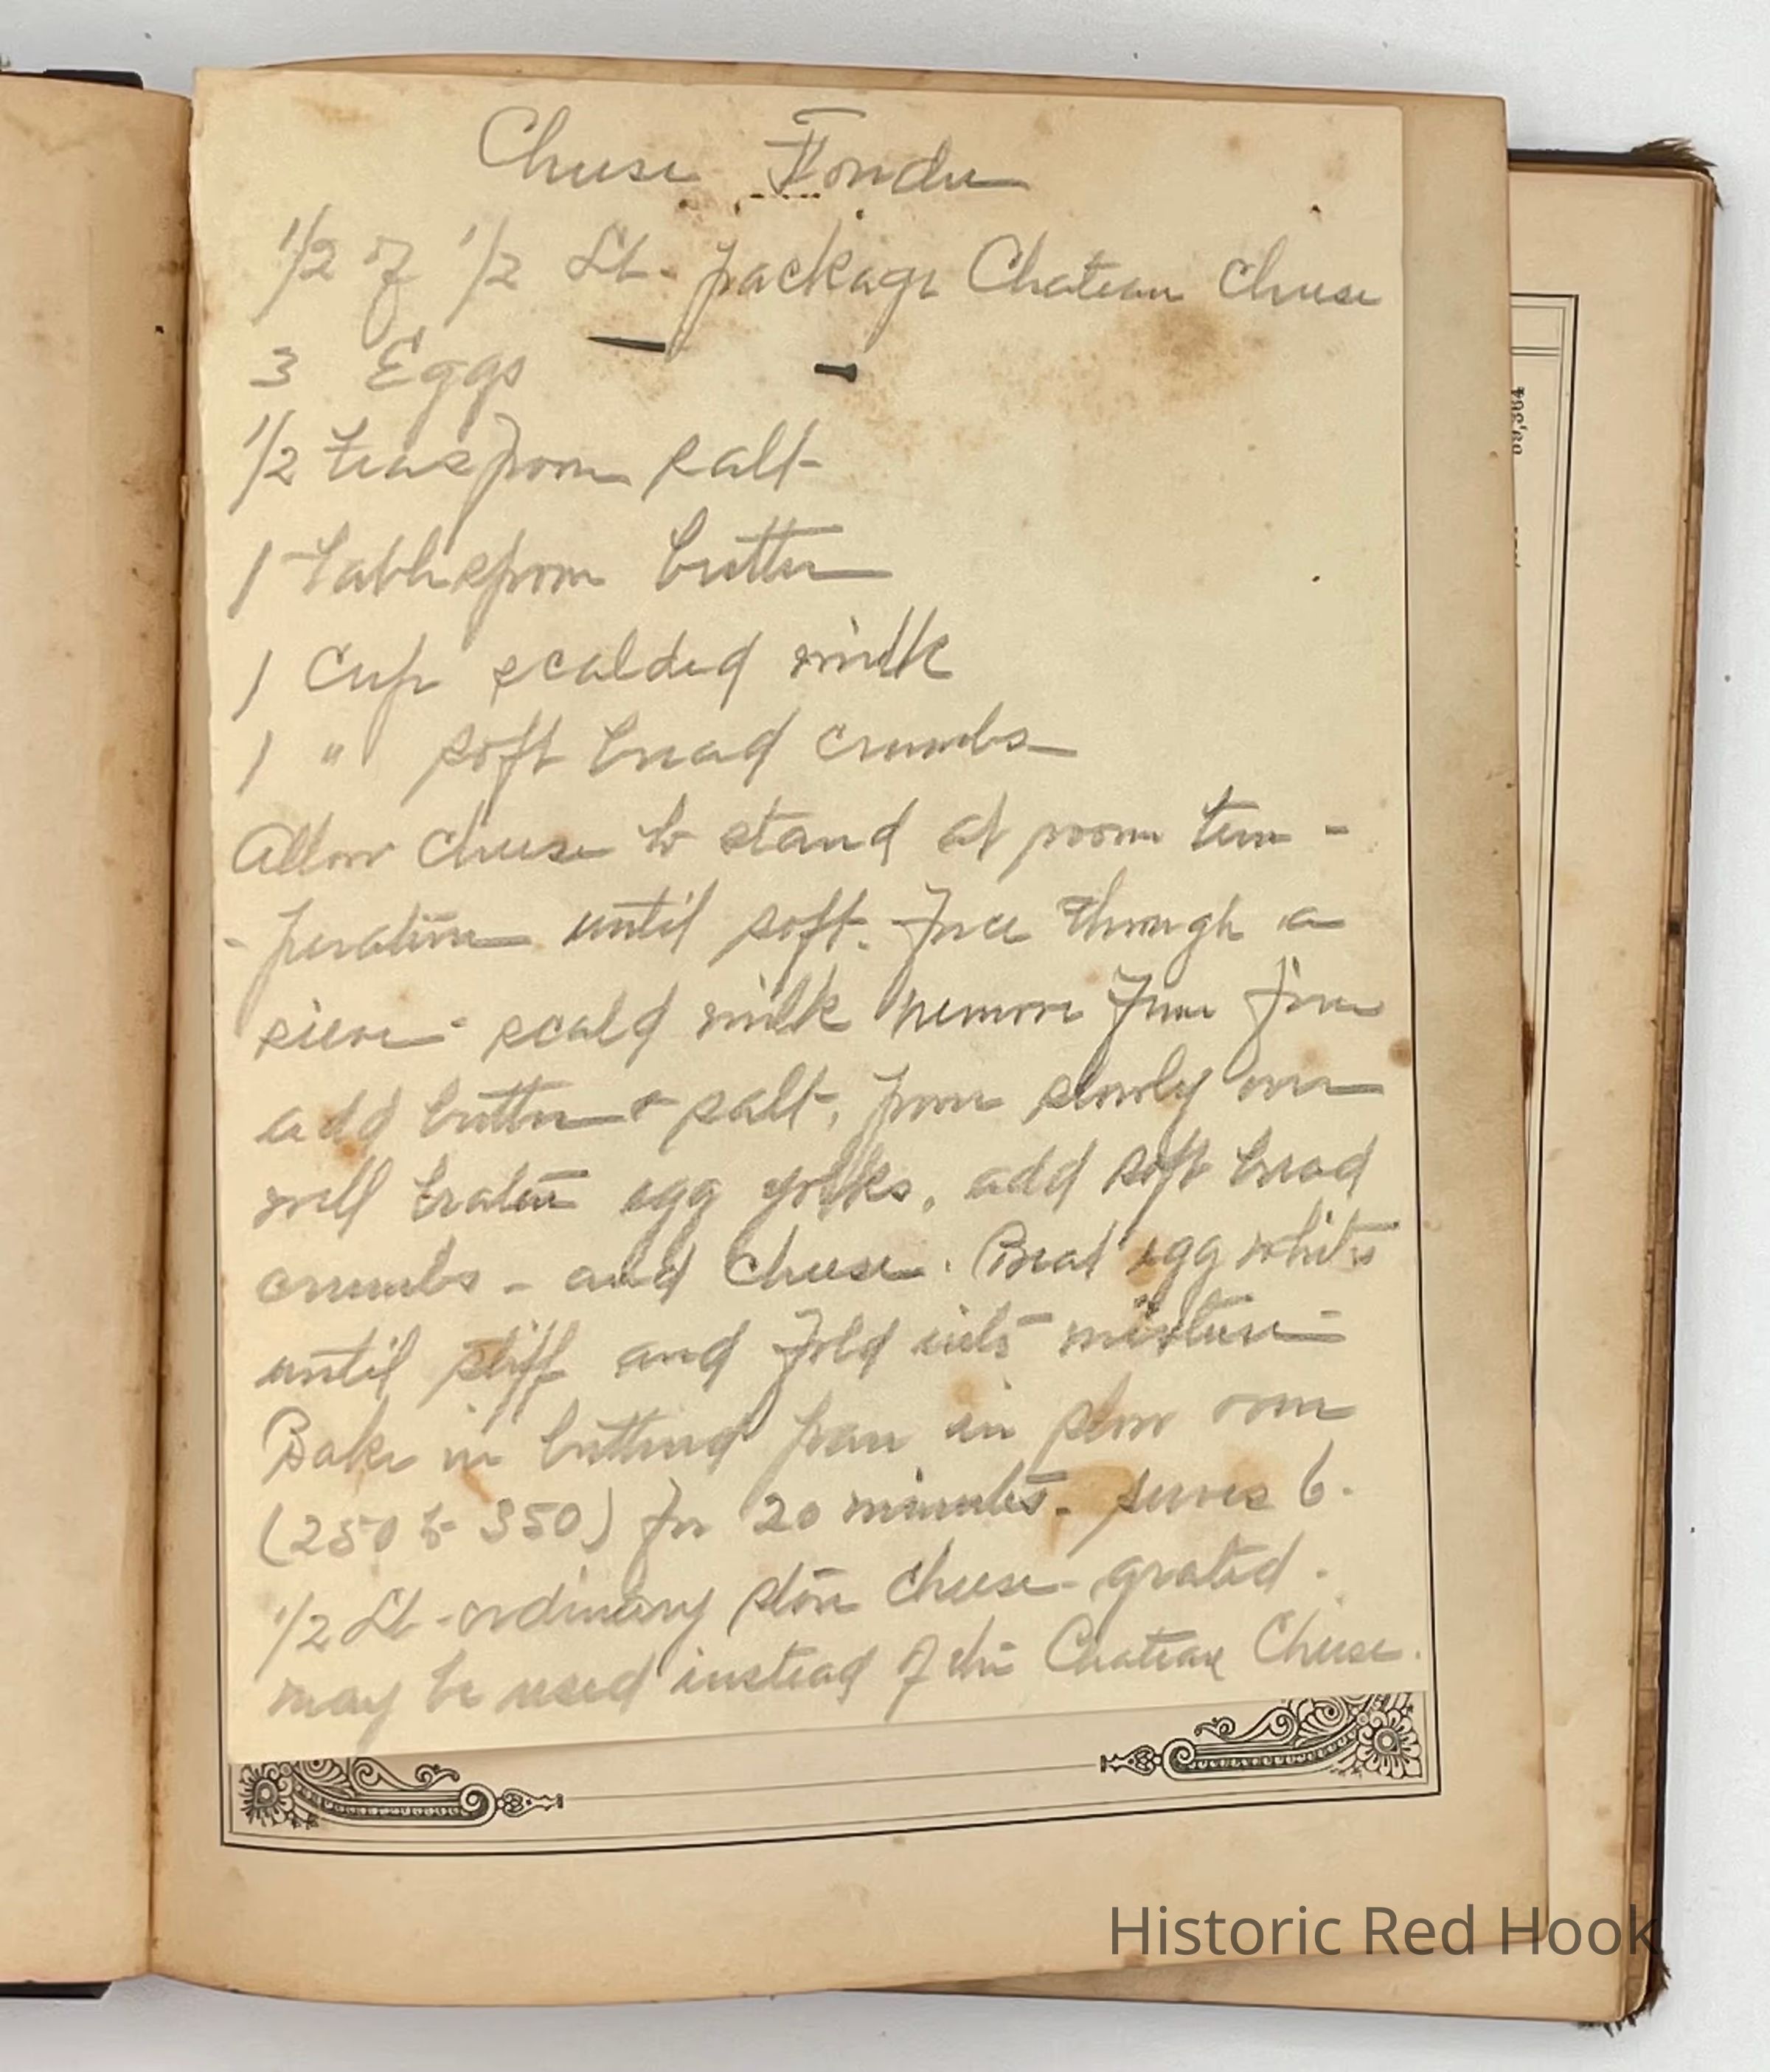 Cheese Fondue
1/2 of 1/2 Lb. package Chateau Cheese
3 Eggs
1/2 teaspoon salt
1 tablespoon butter
1 Cup scalded milk
1 " soft bread crumbs
Allow cheese to stand at room tem -
- perature until soft. Force through a
sieve - scald milk remove from fire
add butter & salt, pour slowly over
well beaten egg yolks, add soft bread
crumbs - and cheese. Beat egg whites
until stiff and fold into mixture
Bake in buttered pan in slow oven
(250 to 350) for 20 minutes. serves 6.
1/2 Lb - ordinary store cheese - grated.
may be used instead of the Chateau Cheese.
69,364
Historic Red Hook